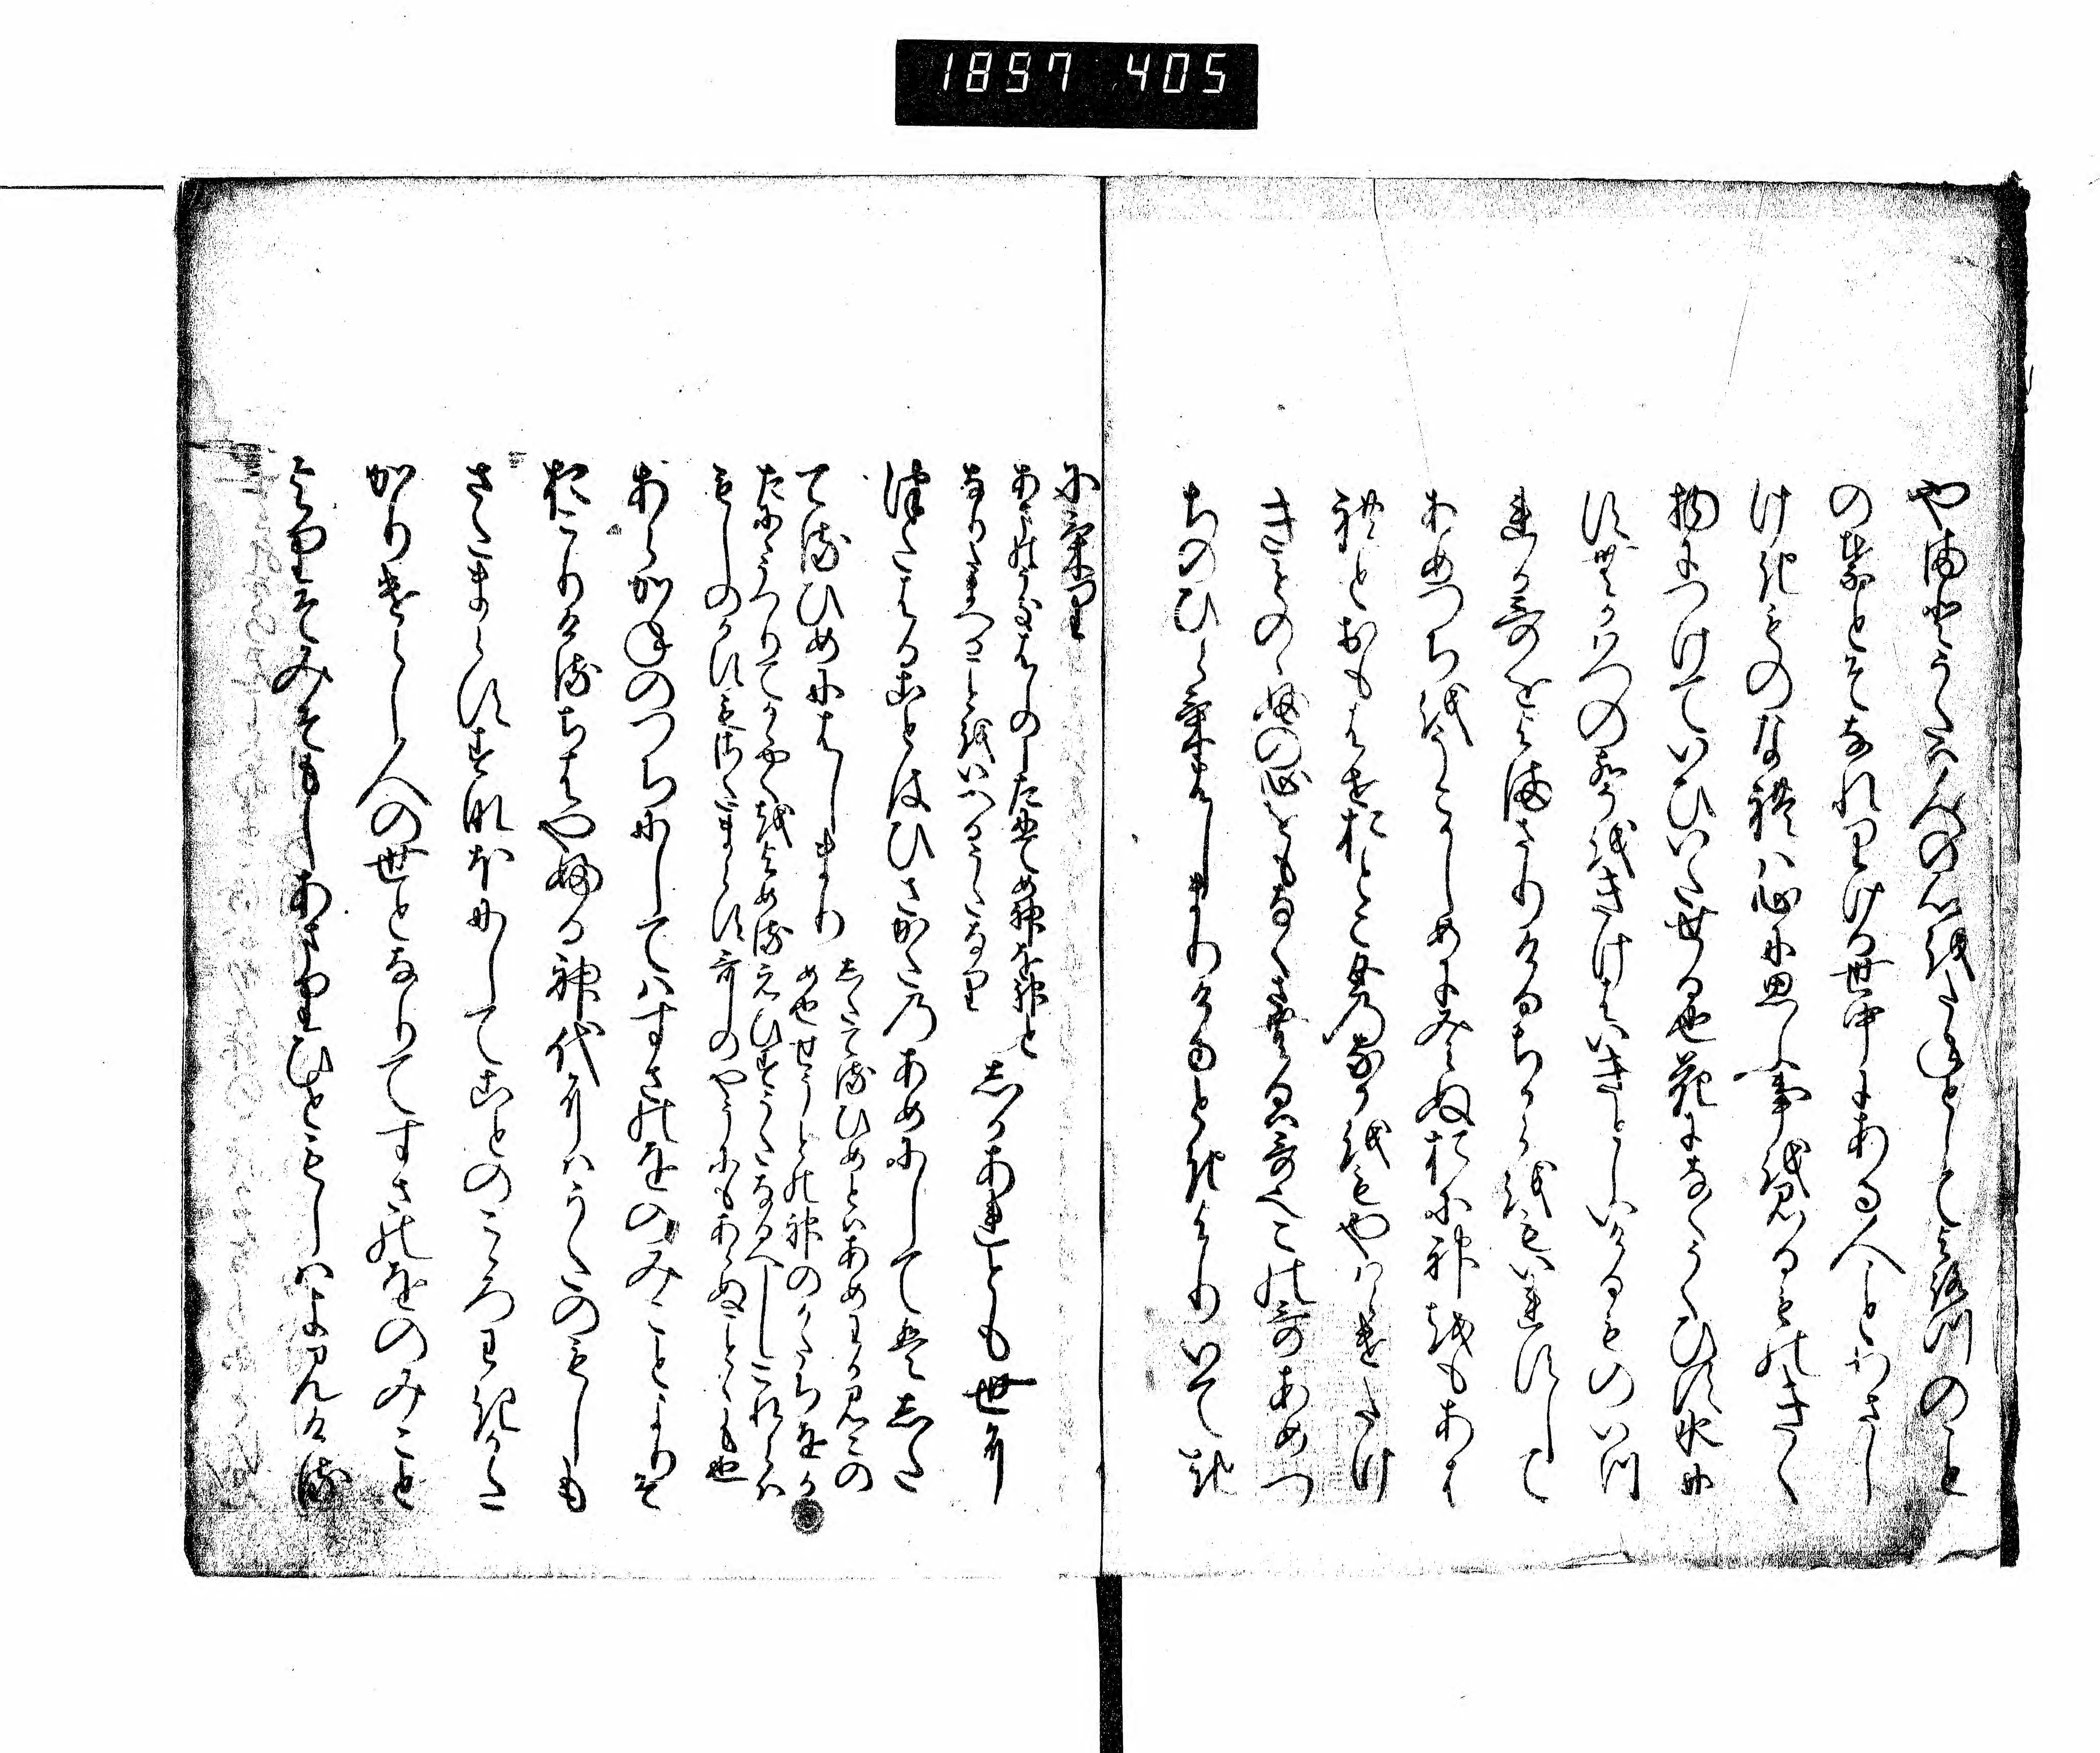 1897 405
やまとうたは人の心をたねとしてよろつのこと
の葉とそなれりける世中にある人ことわさし
けきものなれは心に思ふ事を見るものきく
物につけていひいたせる也花になくうくひす水に
すむかはつの声をきけはいきとしいけるものいつ
れか哥をよまさりけるちからをもいれすして
あめつちをうこかしめにみえぬおに神をもあは
れとおもはせおとこ女のなかをもやはらけたけ
きものゝふの心をもなくさむるは哥也この哥あめつ
ちのひらけはしまりけるときよりいてき
にけり
あまのうきはしのしたにてめ神を神と
なりたまへることをいへるうたなり
しかあれとも世に
つたはることはひさかたのあめにしてはした
てるひめにはしまり
したてるひめとはあめわかみこの
め也せうとの神のかたちをか
たにうつりてかゝやくをよめるえひすうたなるへしこれらは
もしのかすもさたまらす哥のやうにもあらぬことゝも也
あらかねのつちにしてはすさのをのみことよりそ
おこりけるちはやふる神代にはうたのもしも
さたまらすすなほにしてことのこゝろわきかた
かりけらし人の世となりてすさのをのみこと
よりそみそもしあまりひともしはよみける